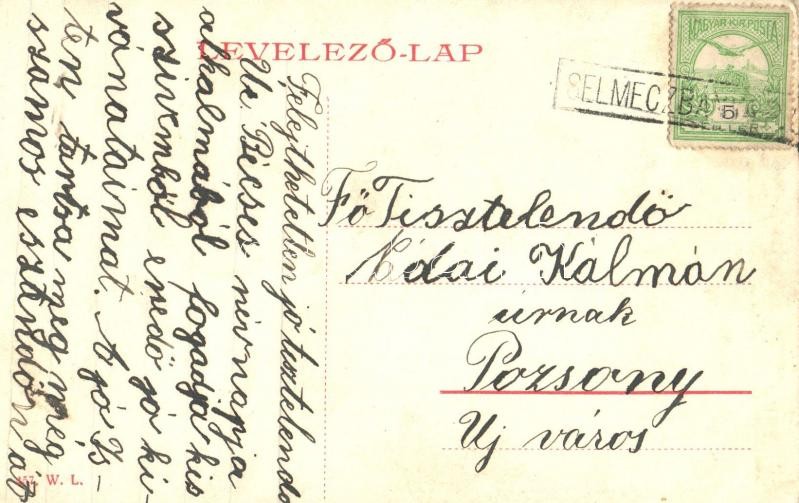 LEVELEZŐ-LAP
MAGYAR KIR. POSTA
5
SELMECZBÁNYA
Felejthetetlen jó tisztelendő
Úr. Becses névnapja
alkalmából fogadja kis
szivemből eredő jó ki-
vánataimat. A jó Is-
ten tartsa meg még
számos esztendőn át
Fő Tisztelendő
Kálmán
úrnak
Pozsony
Uj város
W. L.